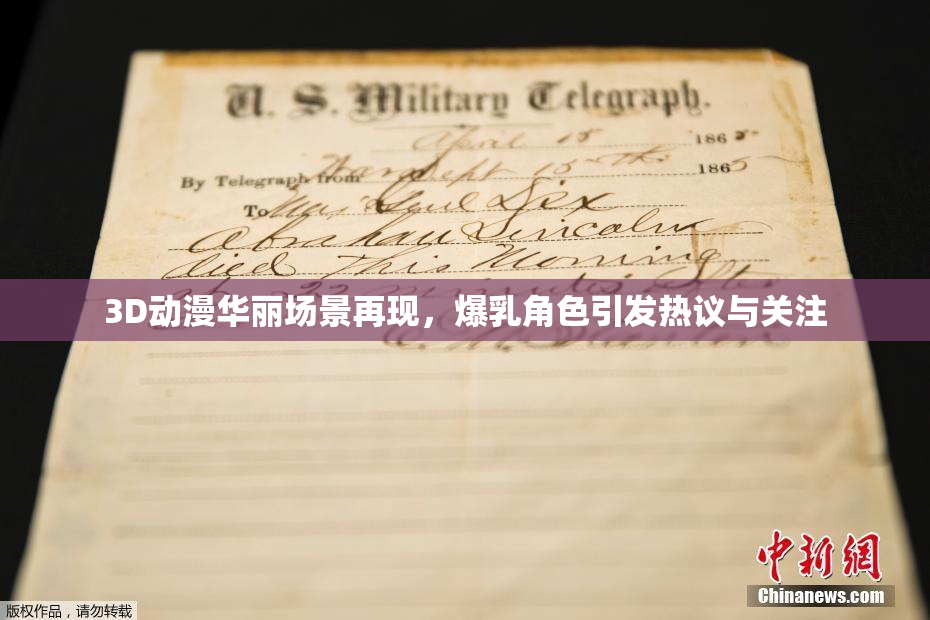 U. S. Military Telegraph.
April 15 1865
By Telegraph from War Dept 15th 1865
To Maj Genl Dix
Abraham Lincoln
died This Morning
at 22 minutes after
3D动漫华丽场景再现，爆乳角色引发热议与关注
E. M. Stanton
中新网
Chinanews.com
版权作品，请勿转载